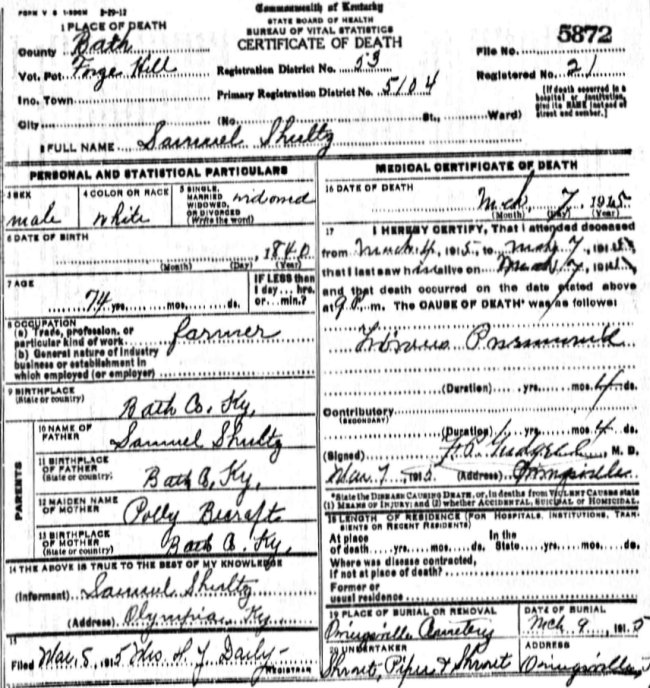 FORM V S 1-500M 8-29-12
Commonwealth of Kentucky
STATE BOARD OF HEALTH
BUREAU OF VITAL STATISTICS
CERTIFICATE OF DEATH
1 PLACE OF DEATH
County Bath
Vot. Pct. Forge Hill
Inc. Town
City
Registration District No. 53
Primary Registration District No. 5104
(No. St., Ward)
5872
File No.
Registered No. 21
[If death occurred in a hospital or institution, give its NAME instead of street and number.]
2 FULL NAME Samuel Shultz
PERSONAL AND STATISTICAL PARTICULARS
3 SEX
male
4 COLOR OR RACE
white
5 SINGLE, MARRIED WIDOWED, OR DIVORCED (Write the word)
widowed
6 DATE OF BIRTH
, 1840
(Month) (Day) (Year)
7 AGE
74 yrs. mos. ds.
IF LESS than 1 day... hrs. or... min.?
8 OCCUPATION
(a) Trade, profession, or particular kind of work farmer
(b) General nature of industry business or establishment in which employed (or employer)
9 BIRTHPLACE
(State or country)
Bath Co. Ky,
PARENTS
10 NAME OF FATHER
Samuel Shultz
11 BIRTHPLACE OF FATHER
(State or country)
Bath Co, Ky,
12 MAIDEN NAME OF MOTHER
Polly Becraft
13 BIRTHPLACE OF MOTHER
(State or country)
Bath Co. Ky,
14 THE ABOVE IS TRUE TO THE BEST OF MY KNOWLEDGE
(Informant) Samuel Shultz
(Address) Olympia, Ky
15
Filed Mar, 8, 1915 Mrs. H Y Daily
REGISTRAR
MEDICAL CERTIFICATE OF DEATH
16 DATE OF DEATH
Mch. 7, 1915
(Month) (Day) (Year)
17 I HEREBY CERTIFY, That I attended deceased
from March 4, 1915, to Mch 7, 1915,
that I last saw him alive on Mch 7, 1915,
and that death occurred on the date stated above
at 9 P. m. The CAUSE OF DEATH was as follows:
(Duration) yrs. mos. 4 ds.
Contributory
(SECONDARY)
(Duration) yrs. mos. 4 ds.
(Signed) M. D.
Mar 7, 1915 (Address) Owingsville
*State the DISEASE CAUSING DEATH, or, in deaths from VIOLENT CAUSES state (1) MEANS OF INJURY; and (2) whether ACCIDENTAL, SUICIDAL OR HOMICIDAL.
18 LENGTH OF RESIDENCE (FOR HOSPITALS, INSTITUTIONS, TRANSIENTS OR RECENT RESIDENTS)
At place of death yrs. mos. ds. In the State yrs. mos. ds.
Where was disease contracted, if not at place of death?
Former or usual residence
19 PLACE OF BURIAL OR REMOVAL
Owingsville Cemetery
DATE OF BURIAL
Mch 9, 1915
20 UNDERTAKER
Shrout, Piper & Shrout
ADDRESS
Owingsville,